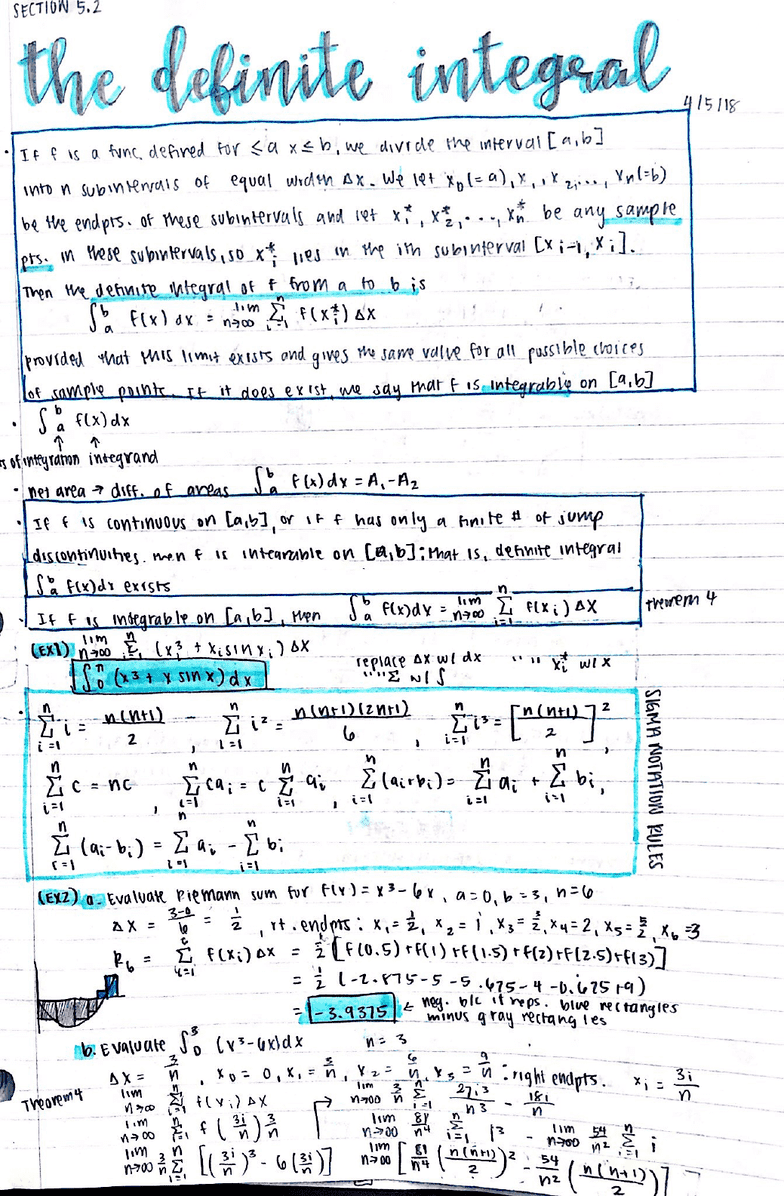 SECTION 5.2
the definite integral
4/5/18
• If f is a func. defined for ≤a x≤b, we divide the interval [a,b]
into n subintervals of equal width Δx. We let x₀(=a), x₁, x₂,..., xₙ(=b)
be the endpts. of these subintervals and let x₁*, x₂*, ..., xₙ* be any sample
pts. in these subintervals, so xᵢ* lies in the ith subinterval [xᵢ₋₁, xᵢ].
Then the definite integral of f from a to b is
∫ₐᵇ f(x) dx = lim n→∞ Σ i=1 n f(xᵢ*) Δx
provided that this limit exists and gives the same value for all possible choices
of sample points. If it does exist, we say that f is integrable on [a,b]
• ∫ₐᵇ f(x) dx
↑ ↑
s of integration integrand
• net area → diff. of areas ∫ₐᵇ f(x) dx = A₁-A₂
• If f is continuous on [a,b], or if f has only a finite # of jump
discontinuities. then f is integrable on [a,b]; that is, definite integral
∫ₐᵇ f(x)dx exists
• If f is integrable on [a,b], then ∫ₐᵇ f(x)dx = lim n→∞ Σ i=1 n f(xᵢ) Δx
theorem 4
(EX1) lim n→∞ Σ i=1 n (xᵢ³ + xᵢ sin xᵢ) Δx
∫₀^π (x³ + x sin x) dx
replace Δx w/ dx " " xᵢ* w/ x
" " Σ w/ ∫
• Σ i=1 n i = n(n+1)/2 , Σ i=1 n i² = n(n+1)(2n+1)/6 , Σ i=1 n i³ = [n(n+1)/2]² ,
Σ i=1 n c = nc , Σ i=1 n caᵢ = c Σ i=1 n aᵢ Σ i=1 n (aᵢ+bᵢ) = Σ i=1 n aᵢ + Σ i=1 n bᵢ ,
Σ i=1 n (aᵢ-bᵢ) = Σ i=1 n aᵢ - Σ i=1 n bᵢ
SIGMA NOTATION RULES
(EX2) a. Evaluate Riemann sum for f(x) = x³-6x, a=0, b=3, n=6
Δx = 3-0/6 = 1/2 , rt. endpts: x₁=1/2, x₂=1, x₃=3/2, x₄=2, x₅=5/2, x₆=3
R₆ = Σ i=1 6 f(xᵢ) Δx = 1/2 [f(0.5)+f(1)+f(1.5)+f(2)+f(2.5)+f(3)]
= 1/2 (-2.875-5-5.675-4-0.675+9)
= -3.9375 ← neg. b/c it reps. blue rectangles
minus gray rectangles
b. Evaluate ∫₀³ (x³-6x)dx n=3
Δx = 3/n , x₀ = 0, x₁ = 3/n, x₂ = 6/n, x₃ = 9/n : right endpts. xᵢ = 3i/n
Theorem 4
lim n→∞ Σ i=1 n f(xᵢ) Δx
lim n→∞ Σ i=1 n f(3i/n) 3/n
lim n→∞ 3/n Σ i=1 n [(3i/n)³ - 6(3i/n)]
→ lim n→∞ 3/n Σ i=1 n 27i³/n³ - 18i/n
lim n→∞ 81/n⁴ Σ i=1 n i³ - lim n→∞ 54/n² Σ i=1 n i
lim n→∞ [81/n⁴ (n(n+1)/2)² - 54/n² (n(n+1)/2)]